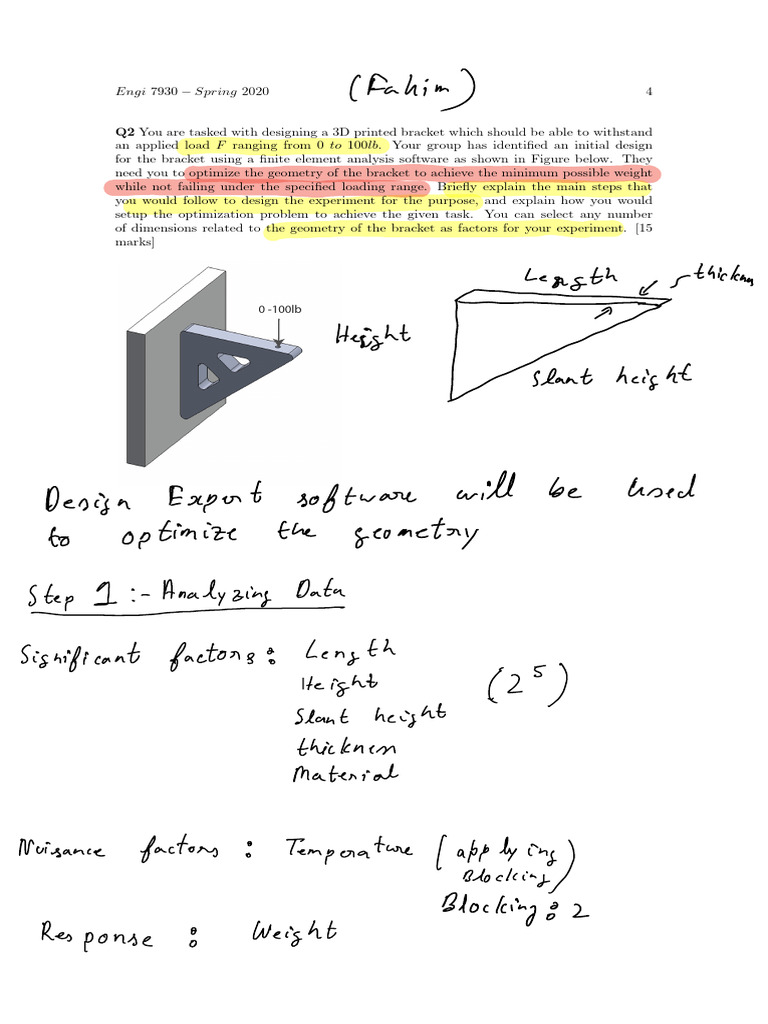 Engi 7930 – Spring 2020 (Fahim) 4
Q2 You are tasked with designing a 3D printed bracket which should be able to withstand
an applied load F ranging from 0 to 100lb. Your group has identified an initial design
for the bracket using a finite element analysis software as shown in Figure below. They
need you to optimize the geometry of the bracket to achieve the minimum possible weight
while not failing under the specified loading range. Briefly explain the main steps that
you would follow to design the experiment for the purpose, and explain how you would
setup the optimization problem to achieve the given task. You can select any number
of dimensions related to the geometry of the bracket as factors for your experiment. [15
marks]
0 -100lb
Length
thickn
Height
Slant height
Design Expert software will be used
to optimize the geometry
Step 1 :- Analyzing Data
Significant factors : Length
Height
(2^5)
Slant height
thickness
Material
Nuisance factors : Temperature (applying
Blocking)
Blocking : 2
Response : Weight